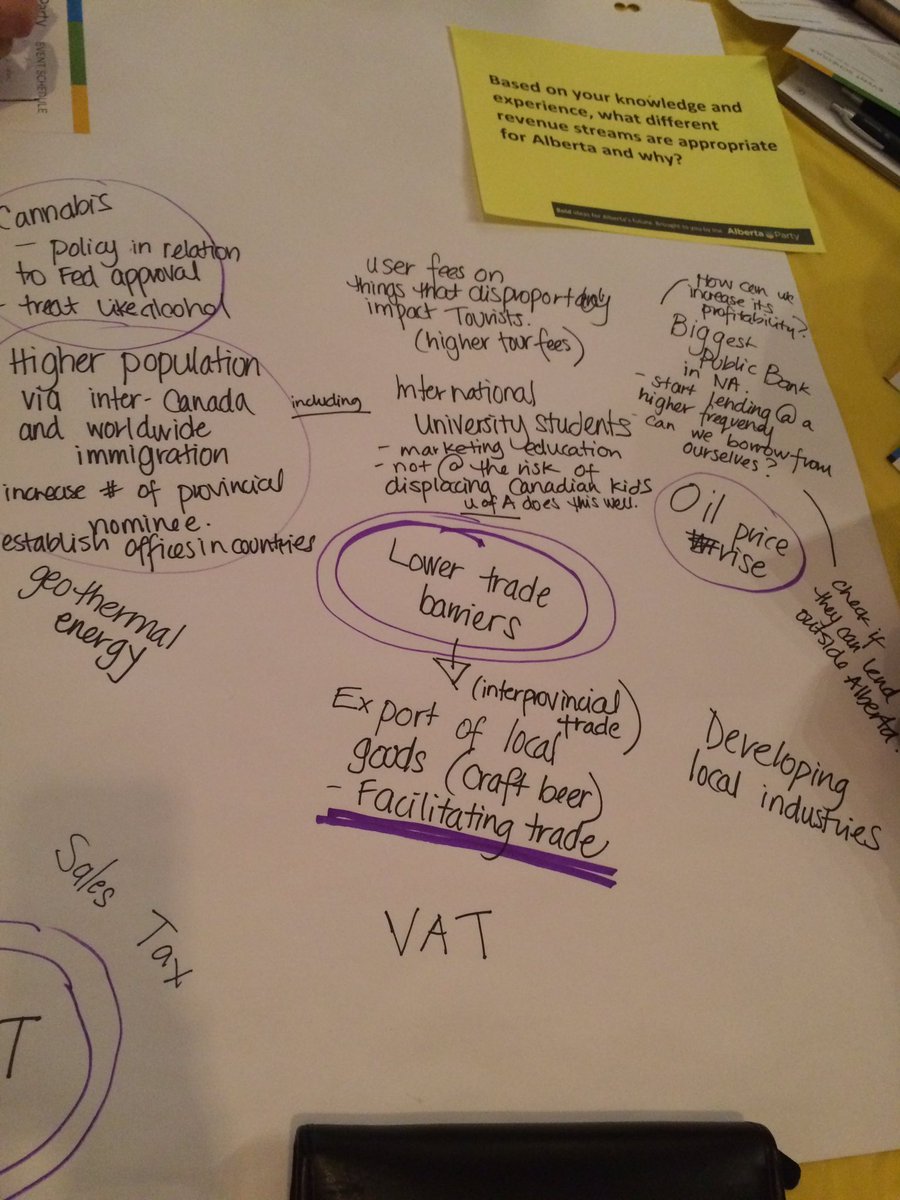 Party
EVENT SCHEDULE
Based on your knowledge and
experience, what different
revenue streams are appropriate
for Alberta and why?
Bold ideas for Alberta's future. Brought to you by the Alberta Party
Cannabis
- policy in relation
to Fed approval
- treat like alcohol
Higher population
via inter-Canada
and worldwide
immigration
increase # of provincial
nominee.
establish offices in countries
including
geothermal
energy
user fees on
things that disproportionately
impact Tourists.
(higher tour fees)
International
University students
- marketing education
- not @ the risk of
displacing Canadian kids
U of A does this well.
How can we
increase its
profitability?
Biggest
Public Bank
in NA.
- start lending @ a
higher frequency
- can we borrow from
ourselves?
check if
they can lend
outside Alberta.
Oil price
rise
Lower trade
barriers
(interprovincial
trade)
Export of local
goods (craft beer)
- Facilitating trade
Developing
local industries
Sales Tax
VAT
T